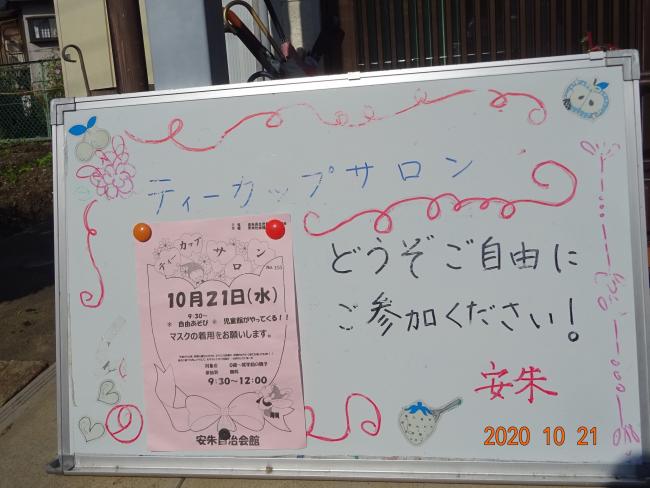 ティーカップサロン
どうぞご自由に
ご参加ください！
安朱
ティーカップ
サロン
10月21日(水)
9:30～
＊ 自由あそび ＊ 児童館がやってくる！！
マスクの着用をお願いします。
9:30～12:00
安朱自治会館
2020 10 21